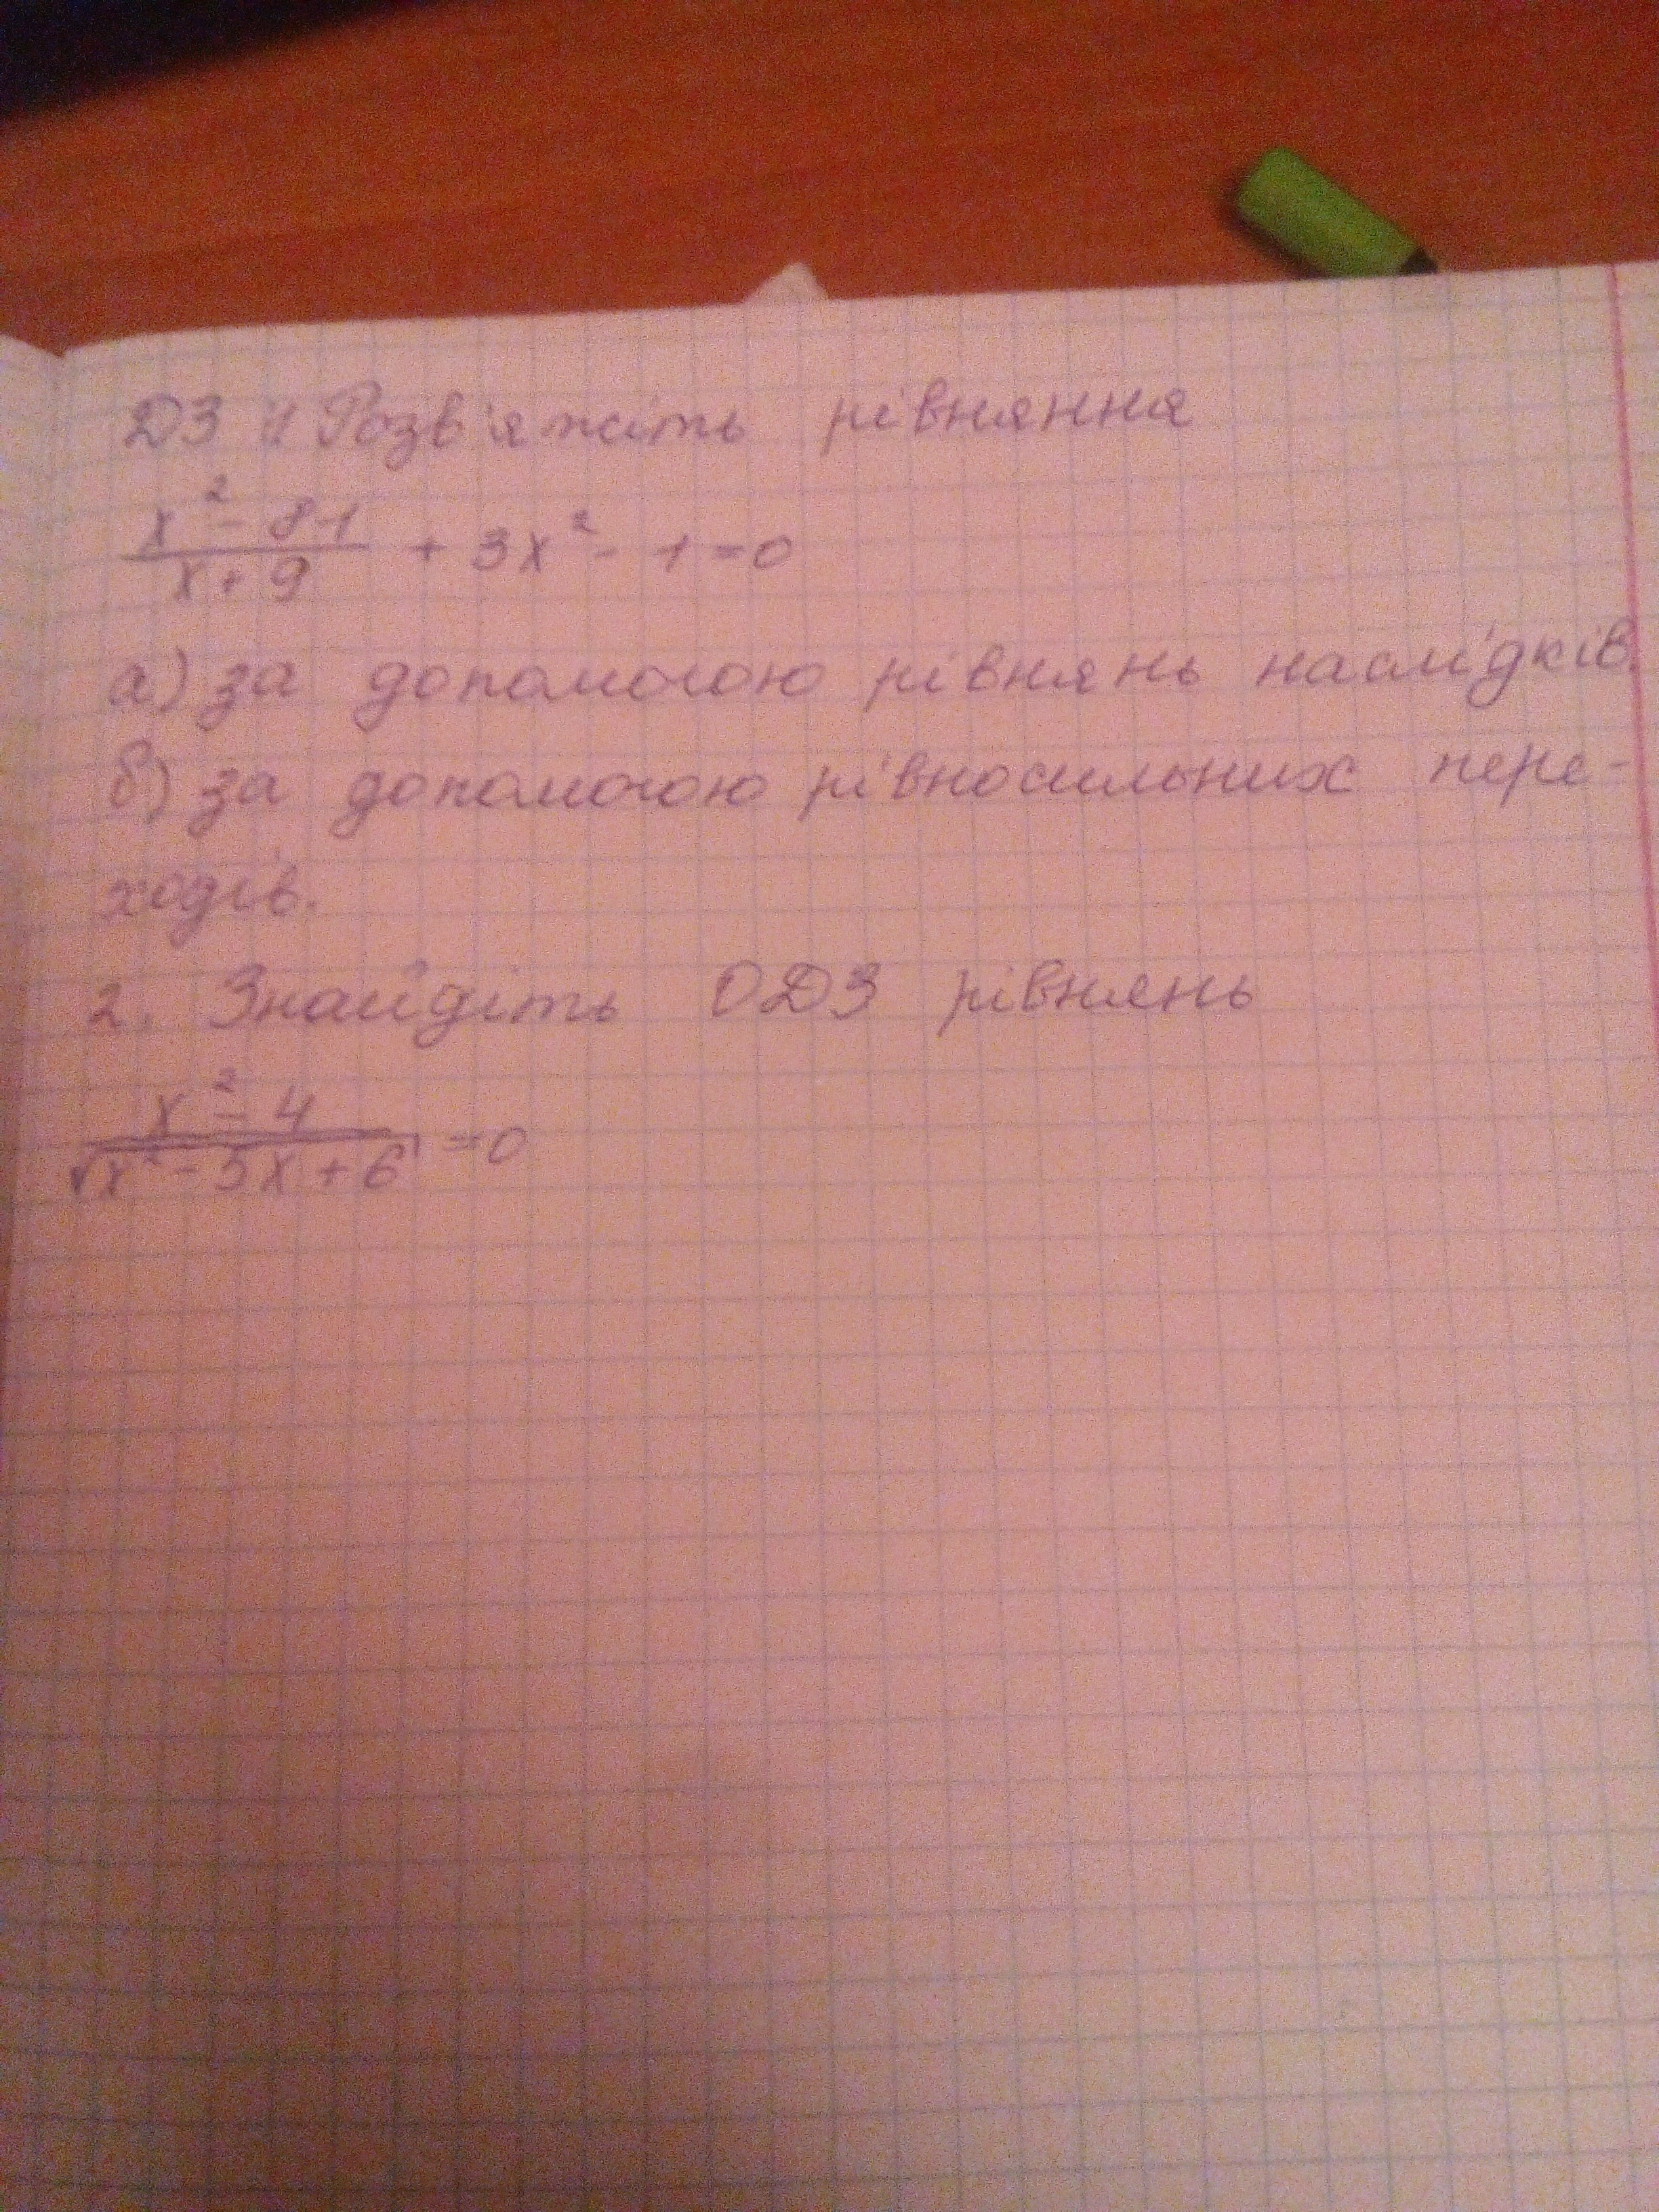 ДЗ 1. Розв'яжіть рівняння
x² - 81
x + 9 + 3x² - 1 = 0
а) за допомогою рівнянь наслідків.
б) за допомогою рівносильних пере-
ходів.
2. Знайдіть ОДЗ рівнянь
x² - 4
√x² - 5x + 6 = 0